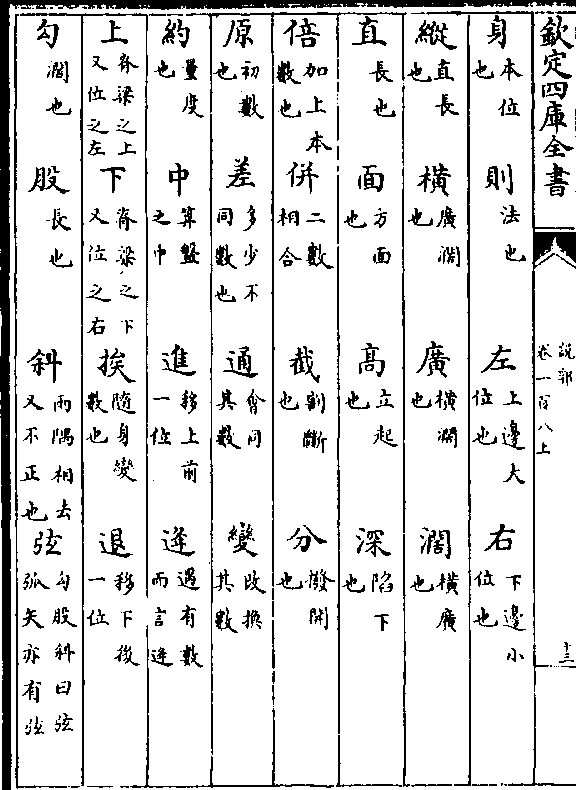 欽定四庫全書
說郛
卷一百八上
十三
身本位也 則法也 左上邊大位也 右下邊小位也
縱直長也 橫廣濶也 廣橫濶也 濶橫廣也
直長也 面方面也 高立起也 深陷下也
倍加上本數也 併二數相合 截割斷也 分撥開也
原初數也 差多少不同數也 通會同其數 變改換其數
約量度也 中算盤之中 進移上前一位 逢遇有數而言逢
上脊梁之上又位之左 下脊梁之下又位之右 挨隨身變數也 退移下後一位
勾濶也 股長也 斜兩隅相去又不正也 弦勾股斜曰弦弧矢亦有弦